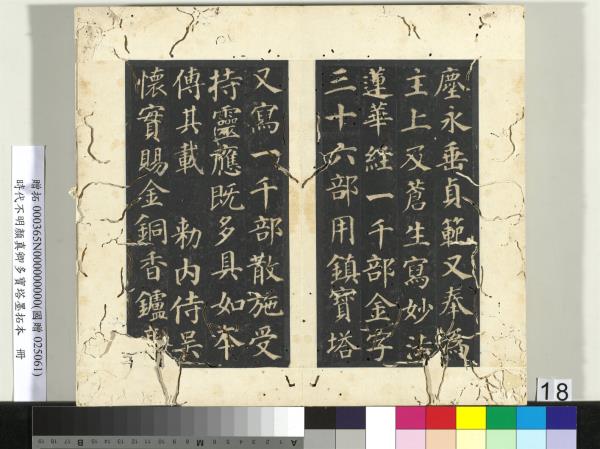 塵永垂貞範又奉為
主上及蒼生寫妙法
蓮華經一千部金字
三十六部用鎮寶塔
又寫一千部散施受
持靈應既多具如本
傳其載 勑內侍吳
懷實賜金銅香鑪
贈拓 000365N000000000(國贈 025061)
時代不明顏真卿多寶塔墨拓本 冊
18
A
M
B